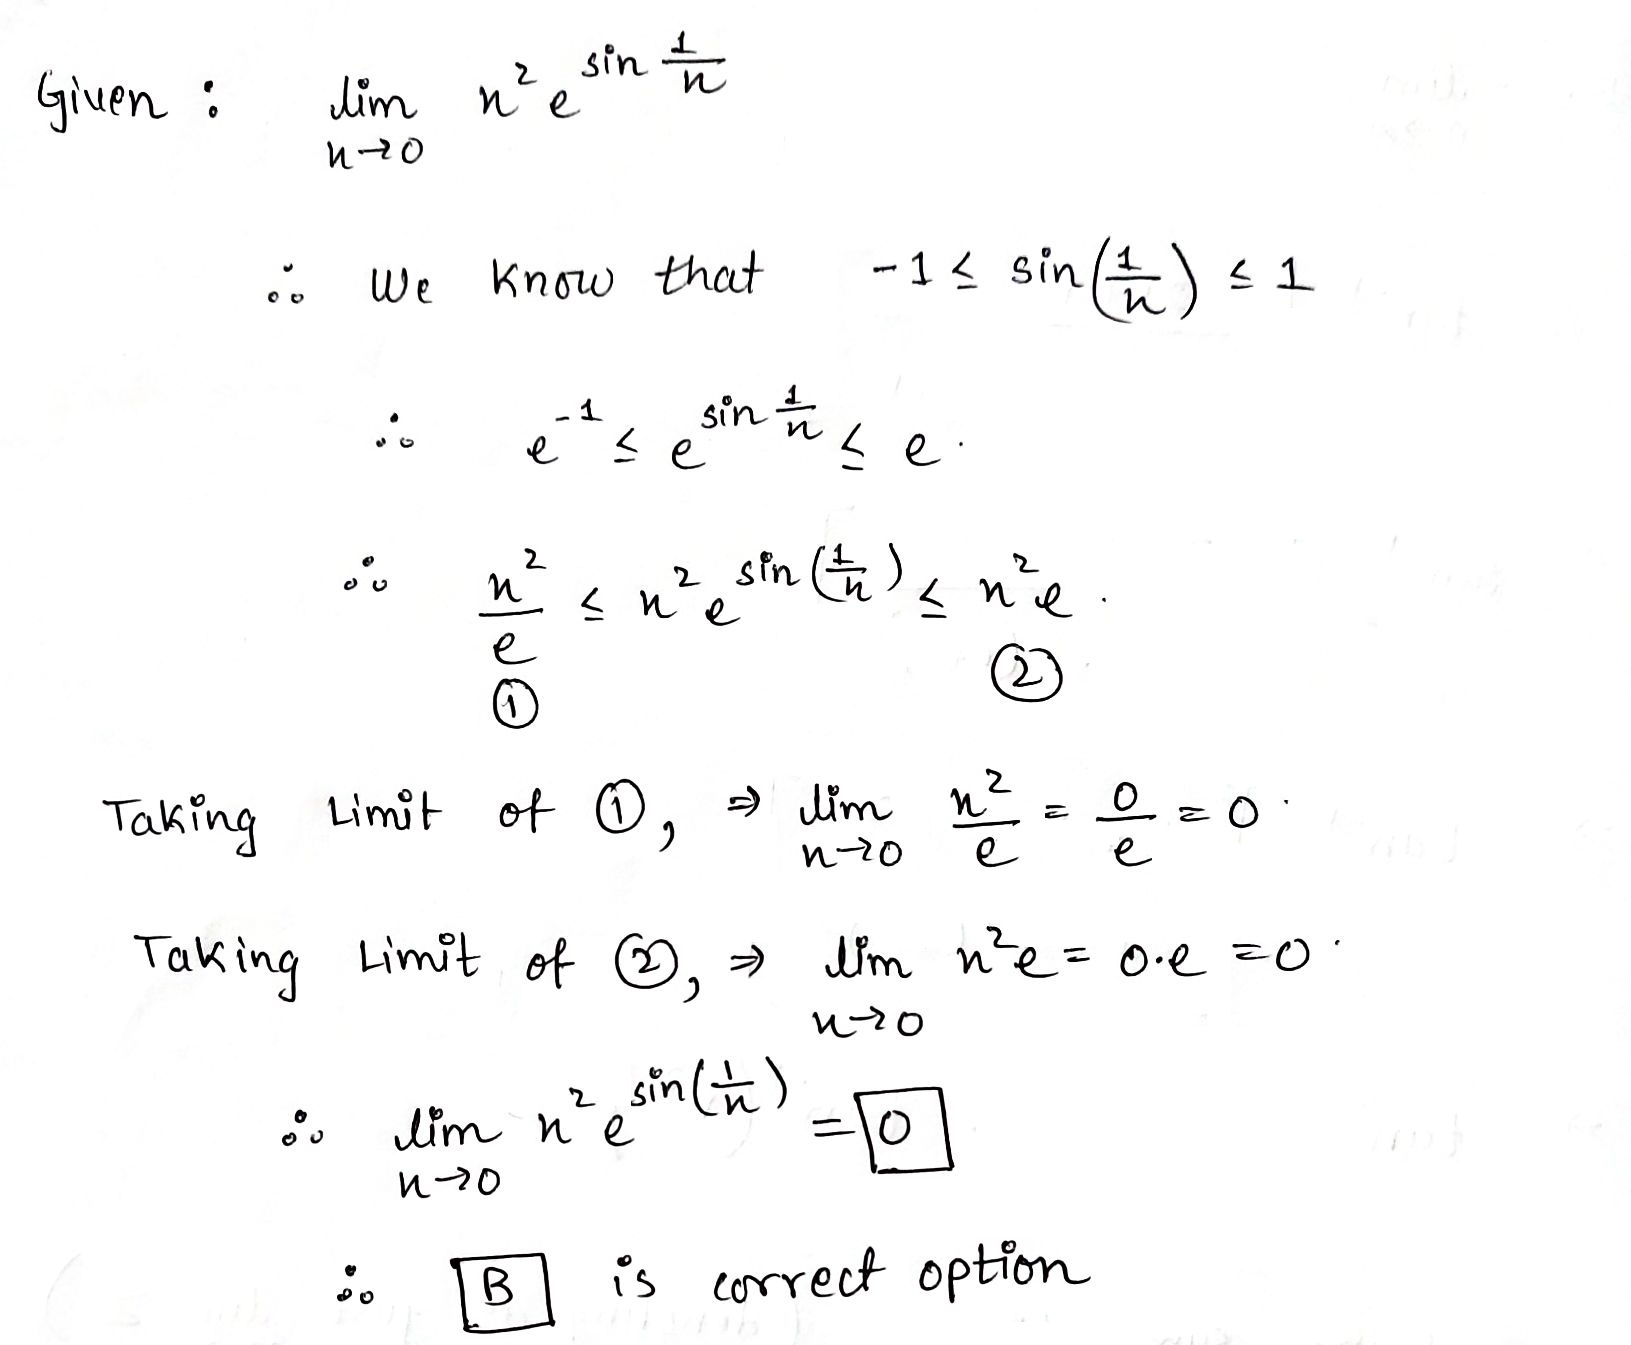 Given : lim n² e^(sin 1/n)
n→0
∴ We Know that -1 ≤ sin(1/n) ≤ 1
∴ e^(-1) ≤ e^(sin 1/n) ≤ e.
∴ n²/e ≤ n² e^(sin(1/n)) ≤ n²e.
① ②
Taking Limit of ①, ⇒ lim n²/e = 0/e = 0.
n→0
Taking Limit of ②, ⇒ lim n²e = 0.e = 0.
n→0
∴ lim n² e^(sin(1/n)) = 0
n→0
∴ B is correct option